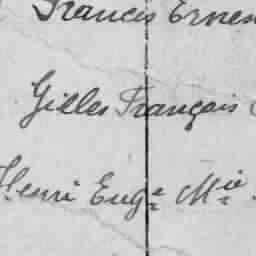 Francis Ernes
Gilles François
Henri Eugne Mie